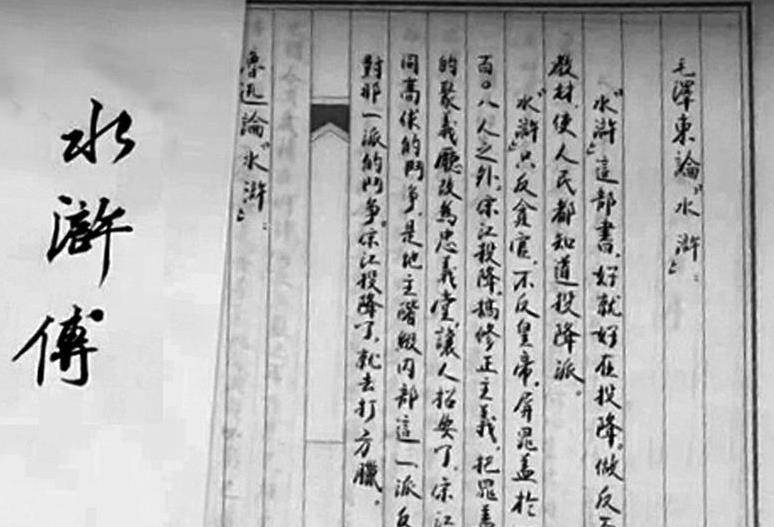 毛澤東論“水滸”：
“水滸”這部書，好就好在投降。做反
教材，使人民都知道投降派。
“水滸”只反貪官，不反皇帝。屏晁蓋於
百〇八人之外。宋江投降，搞修正主義，把晁蓋
的聚義廳改為忠義堂，讓人招安了。宋江
同高俅的鬥爭，是地主階級內部這一派反
對那一派的鬥爭。宋江投降了，就去打方臘。
魯迅論“水滸”：
水滸傳